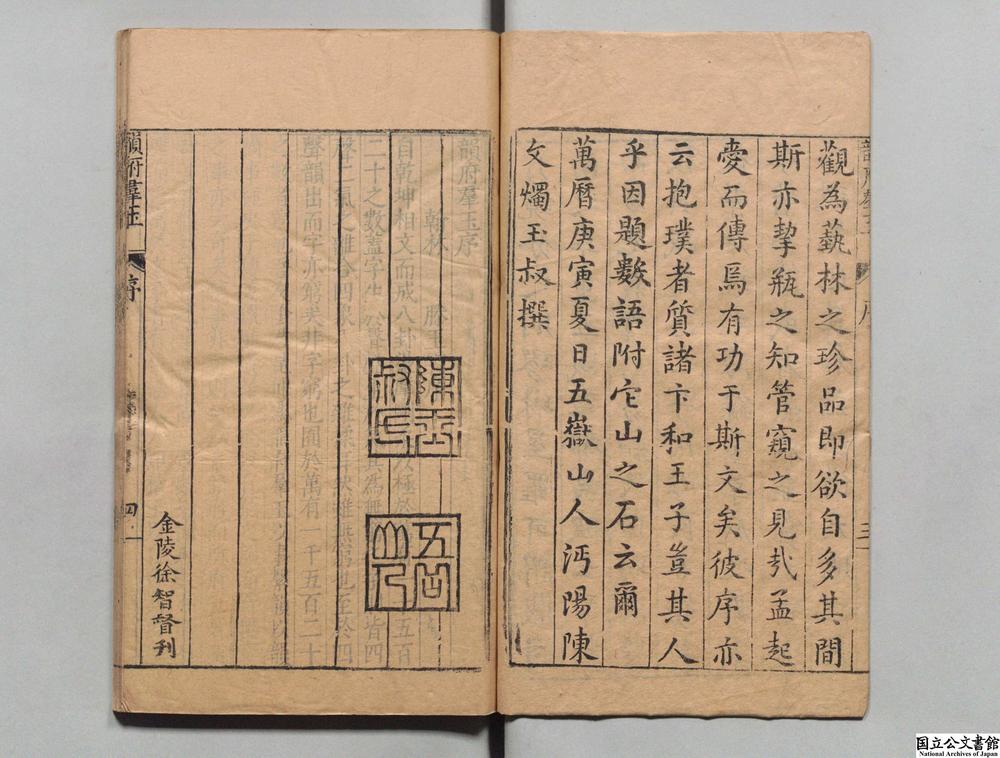 觀為藝林之珍品即欲自多其間
斯亦挈瓶之知管窺之見氿孟起
愛而傳焉有功于斯文矣彼序亦
云抱璞者質諸卞和王子豈其人
乎因題數語附它山之石云爾
萬曆庚寅夏日五嶽山人沔陽陳
文燭玉叔撰
序
三
陳玉叔氏
五岳山人
金陵徐智督刊
韻府羣玉
序
四
国立公文書館
National Archives of Japan